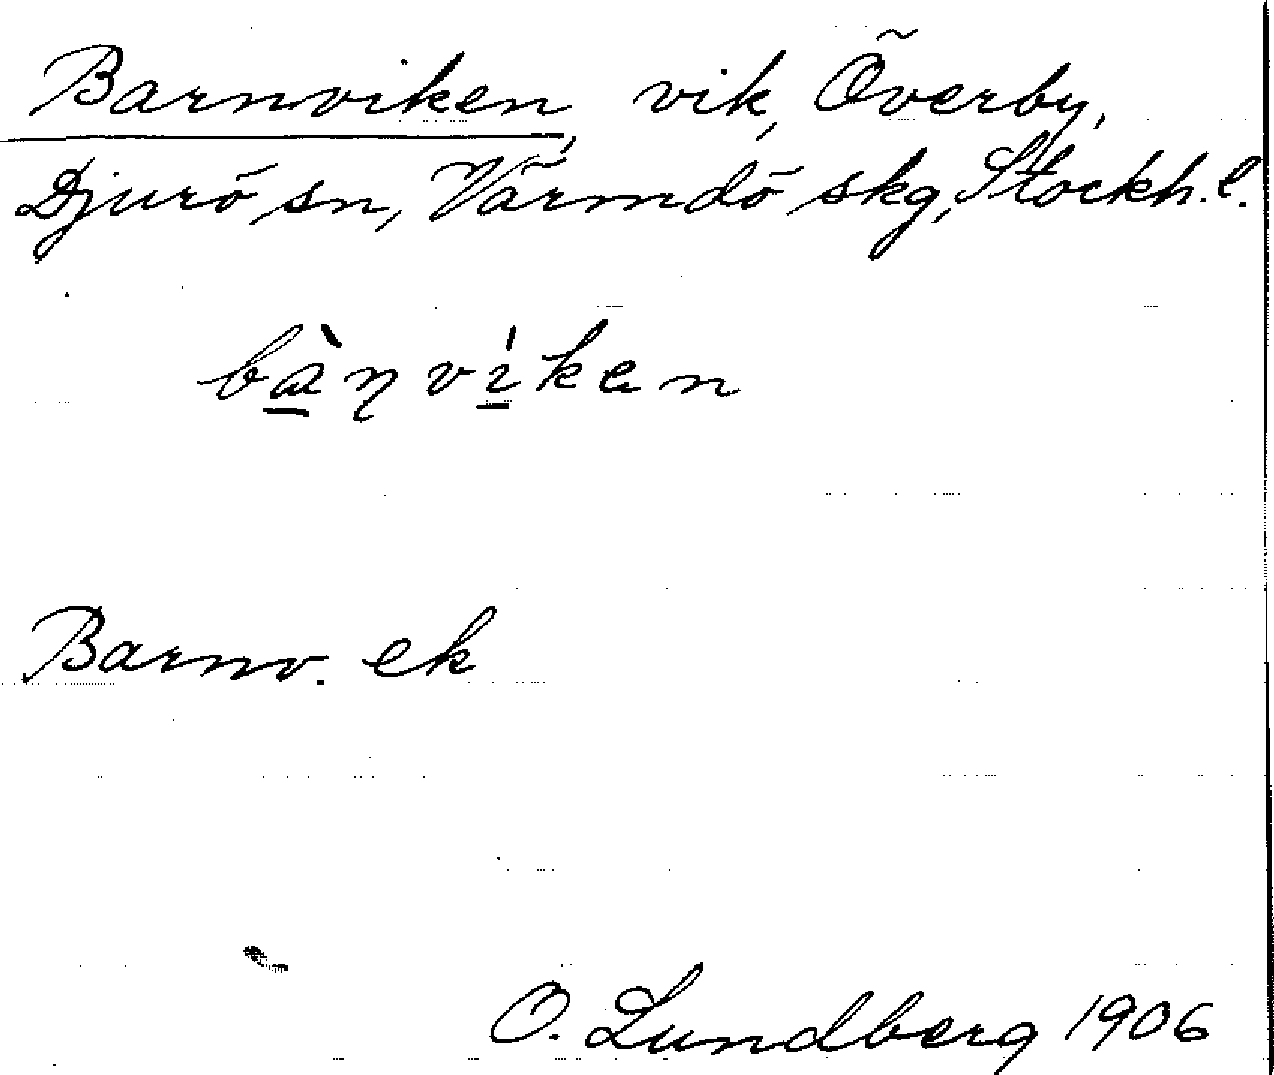 Barnviken, vik, Överby,
Djurö sn, Värmdö skg, Stockh. l.
bà̱ṇvı̱́ken
Barnv. ek
O. Lundberg 1906